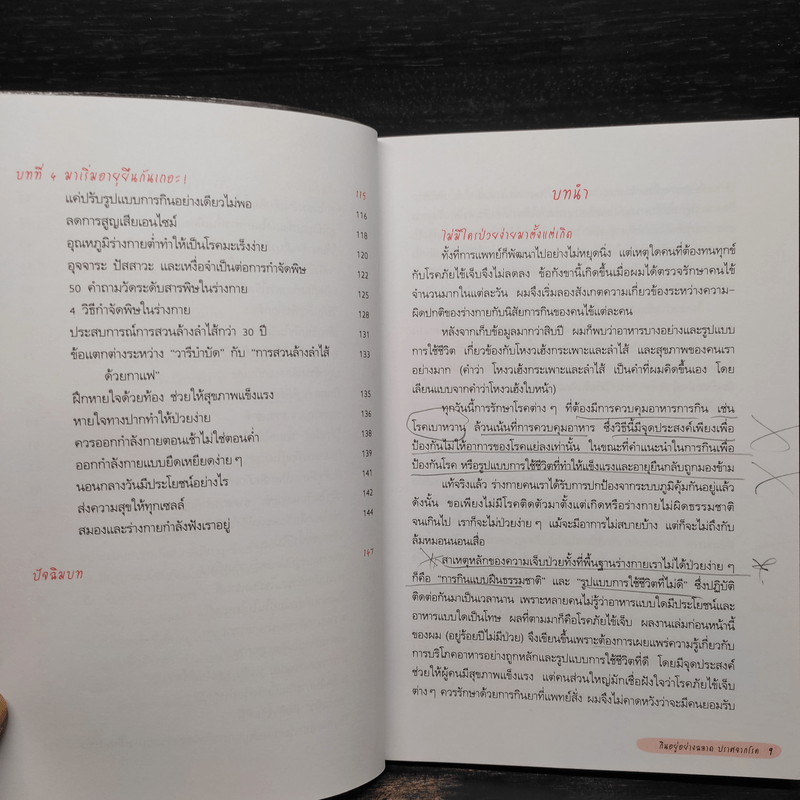 บทที่ 4 มาเริ่มอายุยืนกันเถอะ! 115
แค่ปรับรูปแบบการกินอย่างเดียวไม่พอ 116
ลดการสูญเสียเอนไซม์ 118
อุณหภูมิร่างกายต่ำทำให้เป็นโรคมะเร็งง่าย 120
อุจจาระ ปัสสาวะ และเหงื่อจำเป็นต่อการกำจัดพิษ 122
50 คำถามวัดระดับสารพิษในร่างกาย 125
4 วิธีกำจัดพิษในร่างกาย 128
ประสบการณ์การสวนล้างลำไส้กว่า 30 ปี 131
ข้อแตกต่างระหว่าง “วารีบำบัด” กับ “การสวนล้างลำไส้ 133
ด้วยกาแฟ”
ฝึกหายใจด้วยท้อง ช่วยให้สุขภาพแข็งแรง 135
หายใจทางปากทำให้ป่วยง่าย 136
ควรออกกำลังกายตอนเช้าไม่ใช่ตอนค่ำ 138
ออกกำลังกายแบบยืดเหยียดง่ายๆ 139
นอนกลางวันมีประโยชน์อย่างไร 141
ส่งความสุขให้ทุกเซลล์ 142
สมองและร่างกายกำลังฟังเราอยู่ 144
ปัจฉิมบท 147
บทนำ
ไม่มีใครป่วยง่ายมาตั้งแต่เกิด
ทั้งที่การแพทย์ก็พัฒนาไปอย่างไม่หยุดนิ่ง แต่เหตุใดคนที่ต้องทนทุกข์
กับโรคภัยไข้เจ็บจึงไม่ลดลง ข้อกังขานี้เกิดขึ้นเมื่อผมได้ตรวจรักษาคนไข้
จำนวนมากในแต่ละวัน ผมจึงเริ่มลองสังเกตความเกี่ยวข้องระหว่างความ-
ผิดปกติของร่างกายกับนิสัยการกินของคนไข้แต่ละคน
หลังจากเก็บข้อมูลมากว่าสิบปี ผมก็พบว่าอาหารบางอย่างและรูปแบบ
การใช้ชีวิต เกี่ยวข้องกับโหงวเฮ้งกระเพาะและลำไส้ และสุขภาพของคนเรา
อย่างมาก (คำว่า โหงวเฮ้งกระเพาะและลำไส้ เป็นคำที่ผมคิดขึ้นเอง โดย
เลียนแบบจากคำว่าโหงวเฮ้งใบหน้า)
ทุกวันนี้การรักษาโรคต่างๆ ที่ต้องมีการควบคุมอาหารการกิน เช่น
โรคเบาหวาน ล้วนเน้นที่การควบคุมอาหาร ซึ่งวิธีนี้มีจุดประสงค์เพียงเพื่อ
ป้องกันไม่ให้อาการของโรคแย่ลงเท่านั้น ในขณะที่คำแนะนำในการกินเพื่อ
ป้องกันโรค หรือรูปแบบการใช้ชีวิตที่ทำให้แข็งแรงและอายุยืนกลับถูกมองข้าม
แท้จริงแล้ว ร่างกายคนเราได้รับการปกป้องจากระบบภูมิคุ้มกันอยู่แล้ว
ดังนั้น ขอเพียงไม่มีโรคติดตัวมาตั้งแต่เกิดหรือร่างกายไม่ผิดธรรมชาติ
จนเกินไป เราก็จะไม่ป่วยง่ายๆ แม้จะมีอาการไม่สบายบ้าง แต่ก็จะไม่ถึงกับ
ล้มหมอนนอนเสื่อ
สาเหตุหลักของความเจ็บป่วยทั้งที่พื้นฐานร่างกายเราไม่ได้ป่วยง่ายๆ
ก็คือ “การกินแบบฝืนธรรมชาติ” และ “รูปแบบการใช้ชีวิตที่ไม่ดี” ซึ่งปฏิบัติ
ติดต่อกันมาเป็นเวลานาน เพราะหลายคนไม่รู้ว่าอาหารแบบใดมีประโยชน์และ
อาหารแบบใดเป็นโทษ ผลที่ตามมาก็คือโรคภัยไข้เจ็บ ผลงานเล่มก่อนหน้านี้
ของผม (อยู่ร้อยปีไม่มีป่วย) จึงเขียนขึ้นเพราะต้องการเผยแพร่ความรู้เกี่ยวกับ
การบริโภคอาหารอย่างถูกหลักและรูปแบบการใช้ชีวิตที่ดี โดยมีจุดประสงค์
ช่วยให้ผู้คนมีสุขภาพแข็งแรง แต่คนส่วนใหญ่มักเชื่อฝังใจว่าโรคภัยไข้เจ็บ
ต่างๆ ควรรักษาด้วยการกินยาที่แพทย์สั่ง ผมจึงไม่คาดหวังว่าจะมีคนยอมรับ
กินอยู่อย่างฉลาด ปราศจากโรค 9